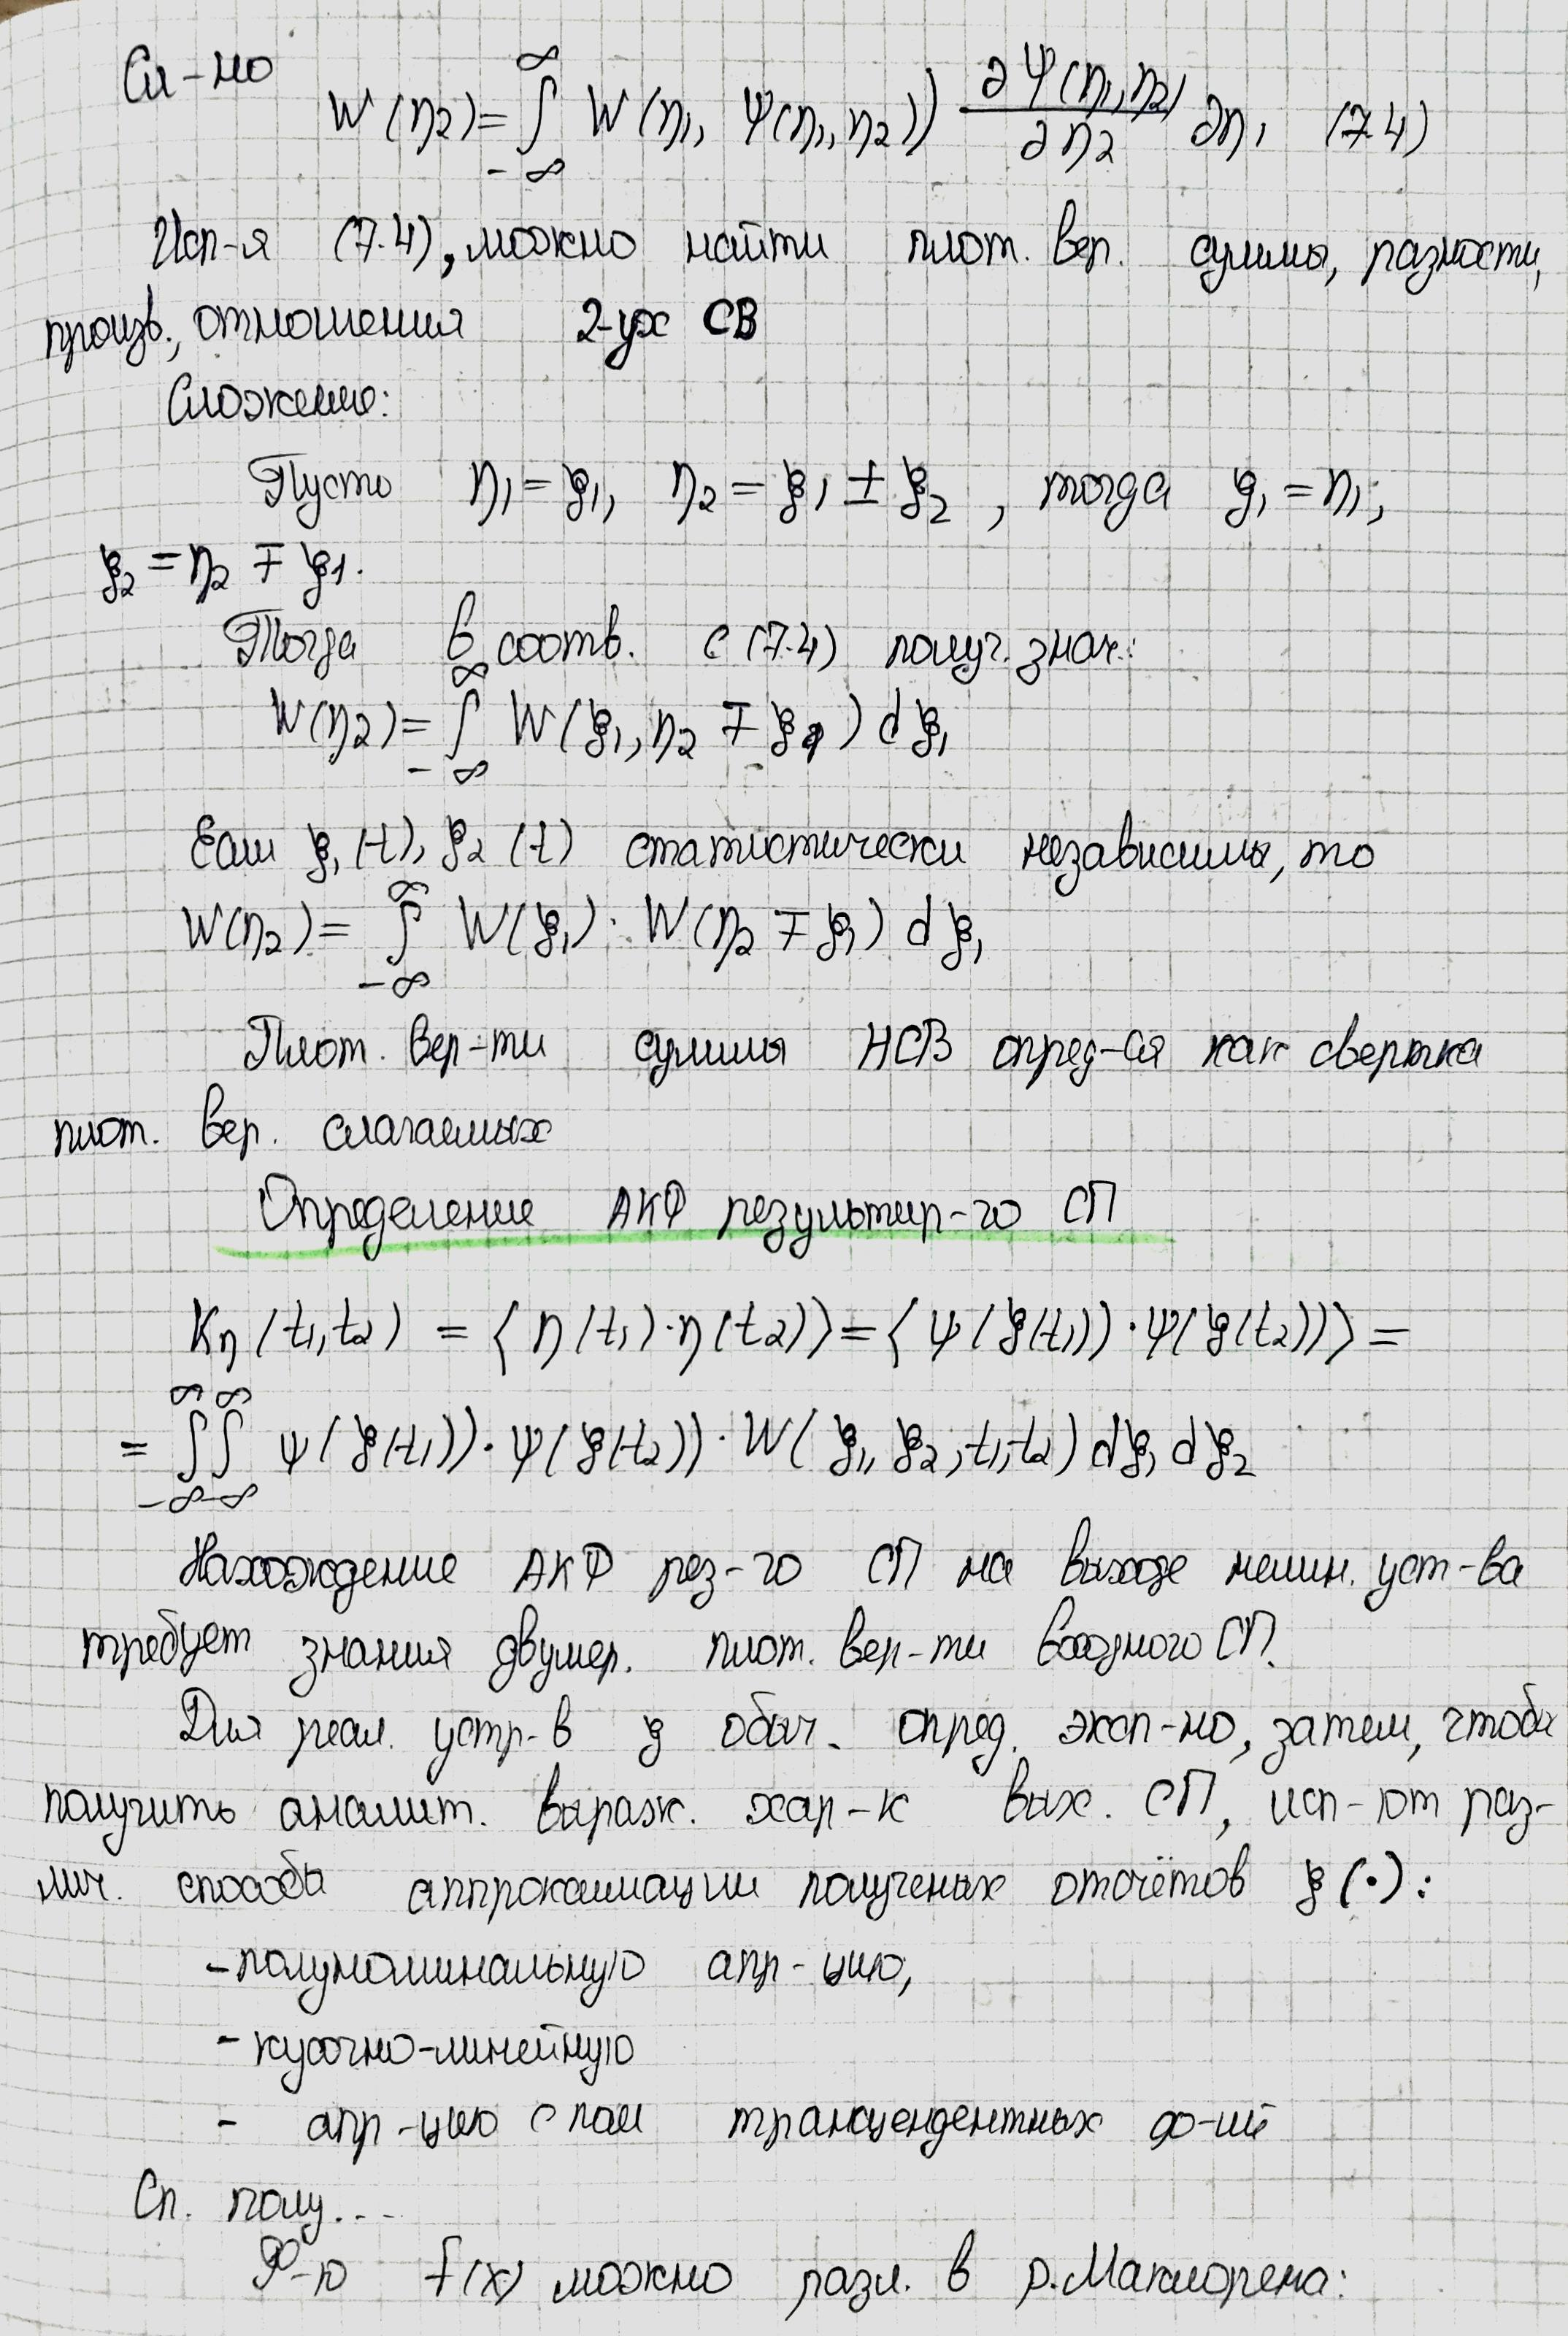 Сл-но
W(η₂) = ∫_{-∞}^{∞} W(η₁, Ψ(η₁,η₂)) ∂Ψ(η₁,η₂)/∂η₂ ∂η₁ (7.4)
Исп-я (7.4), можно найти плот. вер. суммы, разности,
произв., отношения 2-ух СВ
Сложение:
Пусть η₁ = ξ₁, η₂ = ξ₁ ± ξ₂, тогда ξ₁ = η₁;
ξ₂ = η₂ ∓ ξ₁.
Тогда в соотв. с (7.4) получ. знач.:
W(η₂) = ∫_{-∞}^{∞} W(ξ₁, η₂ ∓ ξ₁) dξ₁
Если ξ₁(t), ξ₂(t) статистически независимы, то
W(η₂) = ∫_{-∞}^{∞} W(ξ₁) · W(η₂ ∓ ξ₁) dξ₁
Плот. вер-ти суммы НСВ опред-ся как свертка
плот. вер. слагаемых
Определение АКФ результир-го СП
Kη(t₁,t₂) = ⟨η(t₁)·η(t₂)⟩ = ⟨ψ(ξ(t₁))·ψ(ξ(t₂))⟩ =
= ∫_{-∞}^{∞}∫_{-∞}^{∞} ψ(ξ(t₁))·ψ(ξ(t₂))·W(ξ₁,ξ₂,t₁,t₂) dξ₁ dξ₂
Нахождение АКФ рез-го СП на выходе нелин. уст-ва
требует знания двумер. плот. вер-ти входного СП.
Для реал. устр-в ξ обыч. опред. эксп-но, затем, чтобы
получить аналит. выраж. хар-к вых. СП, исп-ют раз-
лич. способы аппроксимации полученых отсчётов ξ(·):
- полуноминальную апр-цию,
- кусочно-линейную
- апр-цию с пом трансцендентных ф-ий
Сп. полу...
Ф-ю f(x) можно разл. в р. Маклорена: